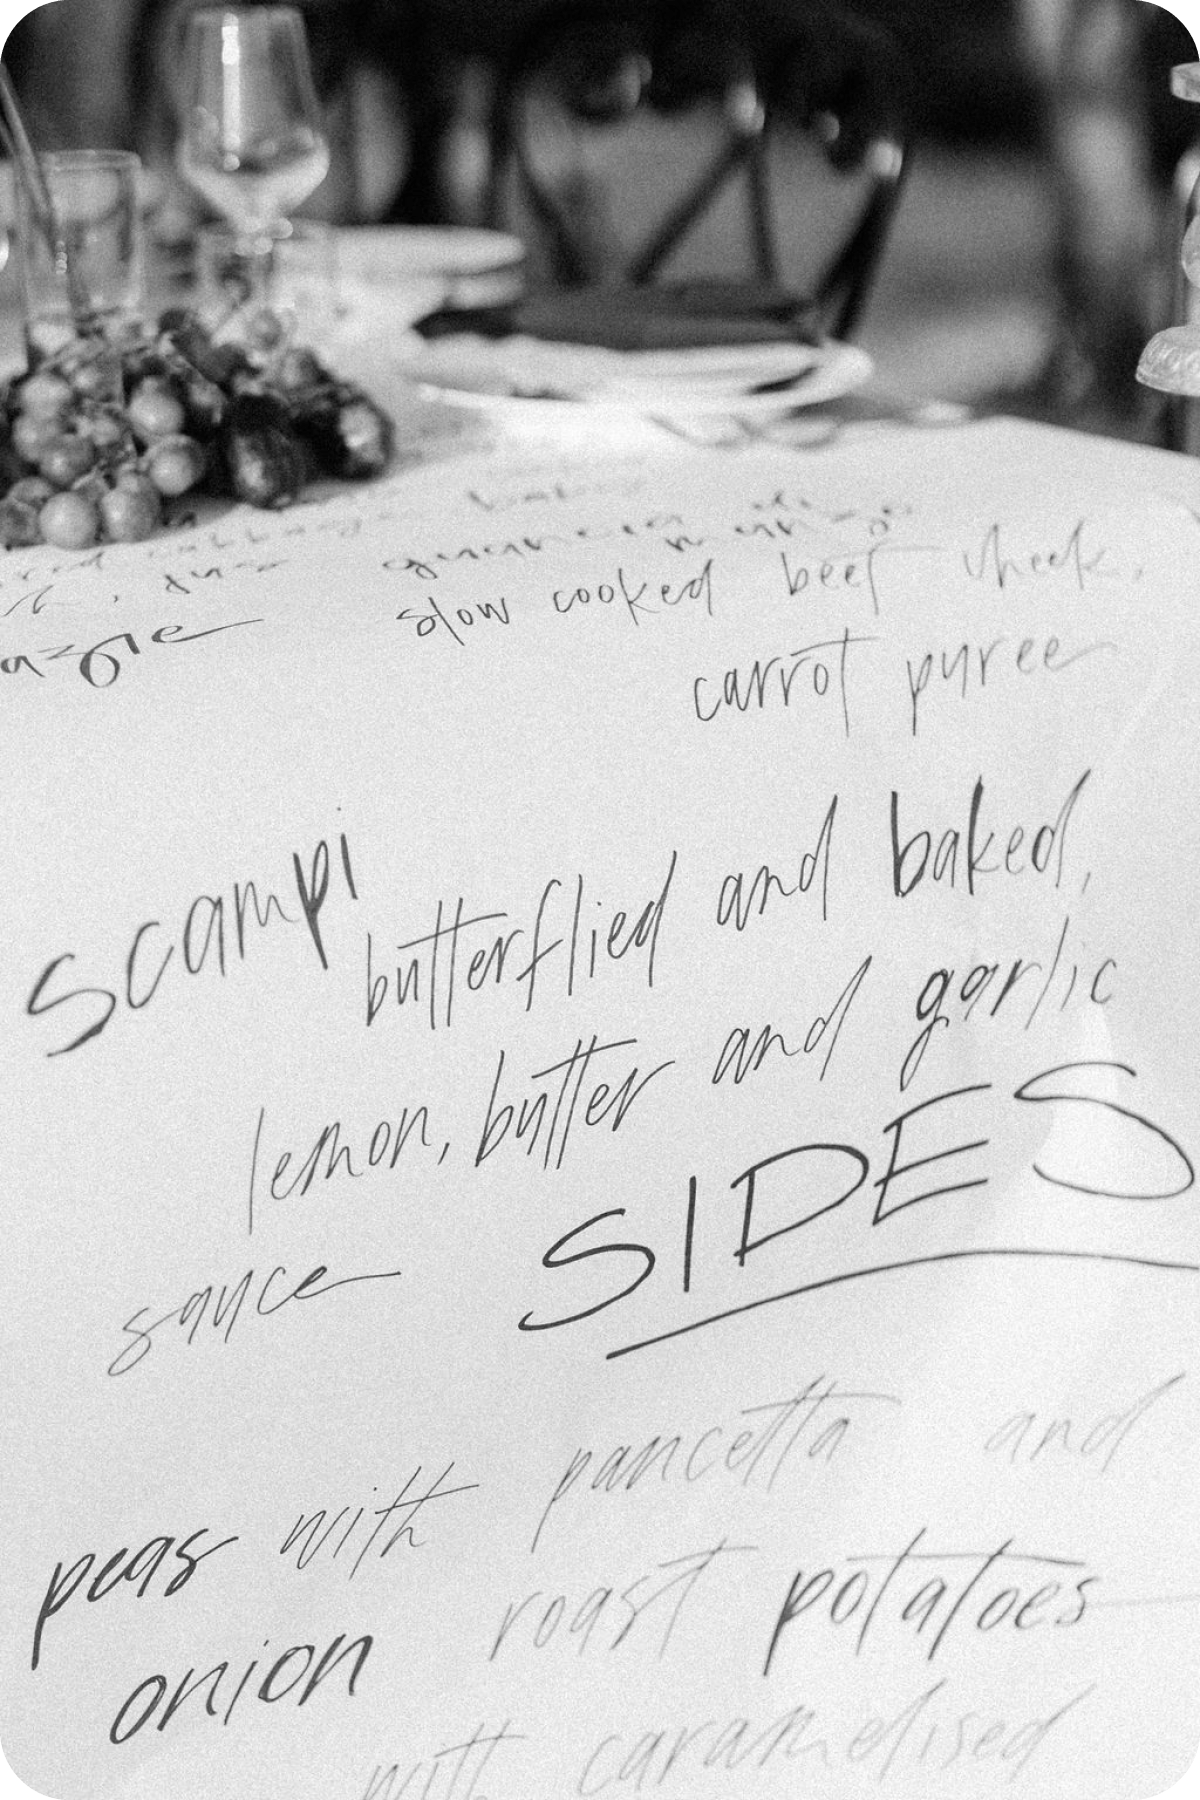 slow cooked beef cheek,
carrot puree
Scampi
butterflied and baked,
lemon, butter and garlic
sauce
SIDES
peas with pancetta and
onion
roast potatoes
with caramelised